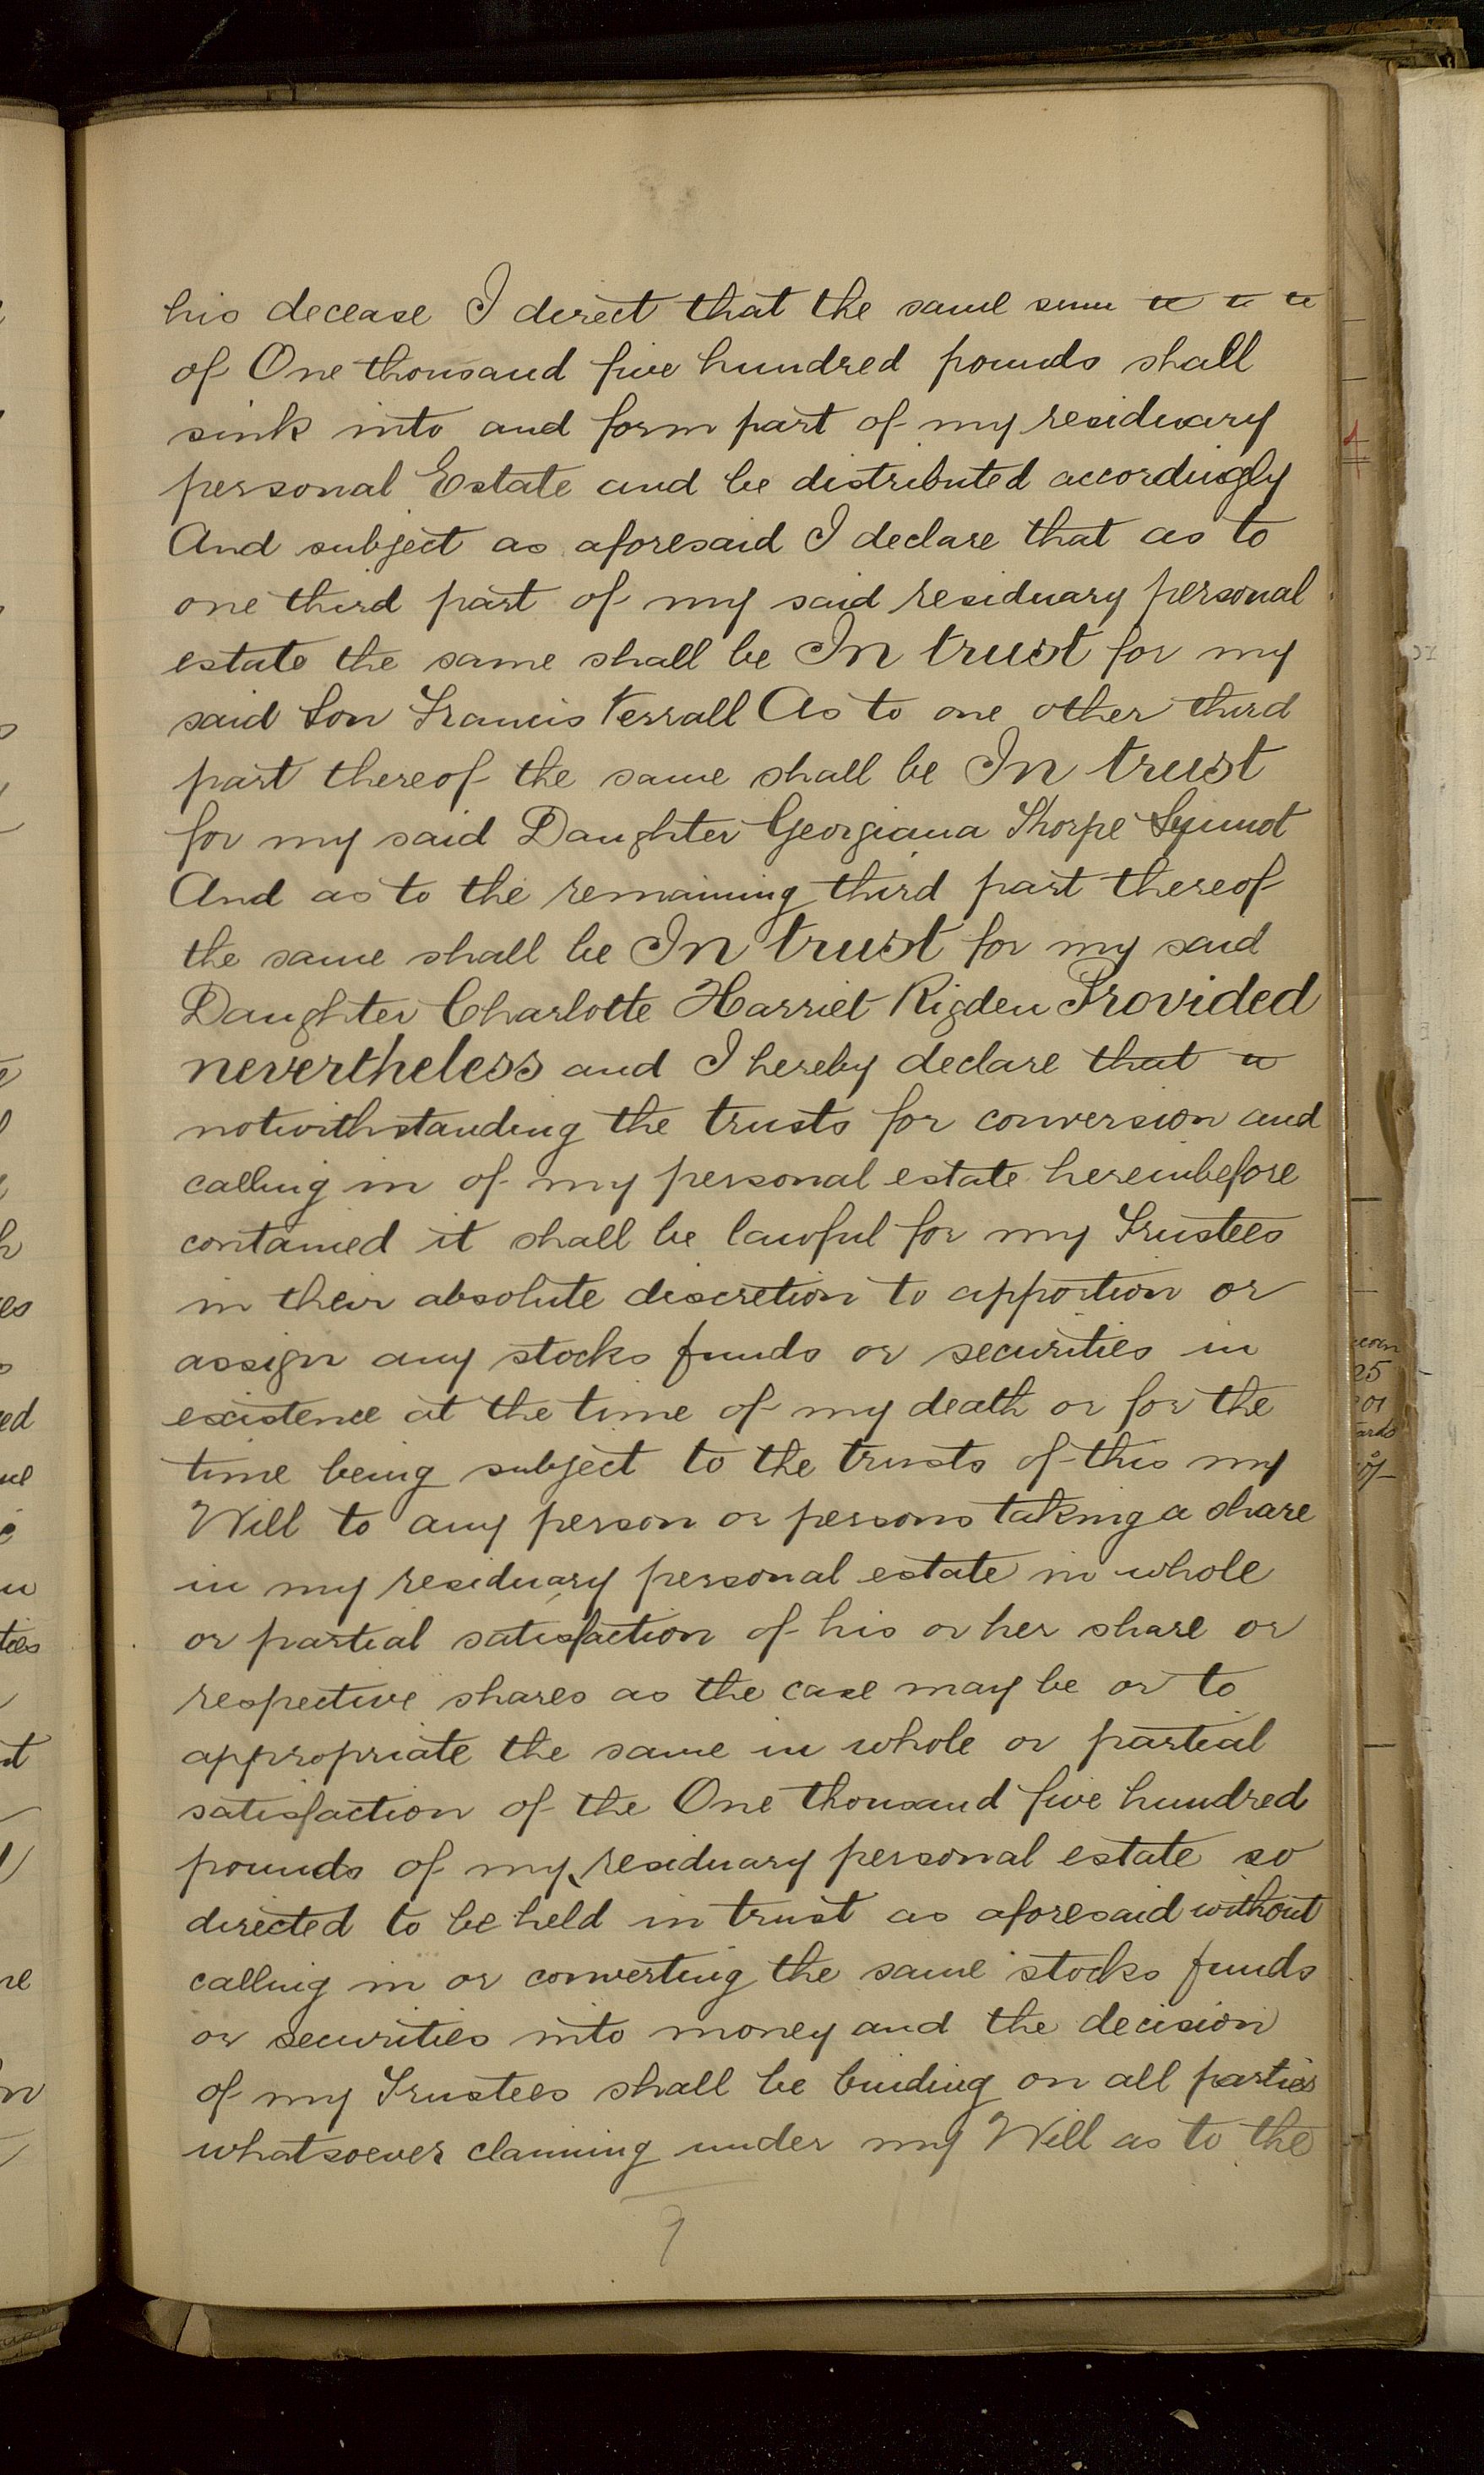 his decease I direct that the same sum
of One thousand five hundred pounds shall
sink into and form part of my residuary
personal Estate and be distributed accordingly
And subject as aforesaid I declare that as to
one third part of my said residuary personal
estate the same shall be In trust for my
said Son Francis Verrall As to one other third
part thereof the same shall be In trust
for my said Daughter Georgiana Thorpe
And as to the remaining third part thereof
the same shall be In trust for my said
Daughter Charlotte Harriet Rigden Provided
nevertheless and I hereby declare that
notwithstanding the trusts for conversion and
calling in of my personal estate hereinbefore
contained it shall be lawful for my Trustees
in their absolute discretion to apportion or
assign any stocks funds or securities in
existence at the time of my death or for the
time being subject to the trusts of this my
Will to any person or persons taking a share
in my residuary personal estate in whole
or partial satisfaction of his or her share or
respective shares as the case may be or to
appropriate the same in whole or partial
satisfaction of the One thousand five hundred
pounds of my residuary personal estate so
directed to be held in trust as aforesaid without
calling in or converting the same stocks funds
or securities into money and the decision
of my Trustees shall be binding on all parties
whatsoever claiming under my Will as to the
9